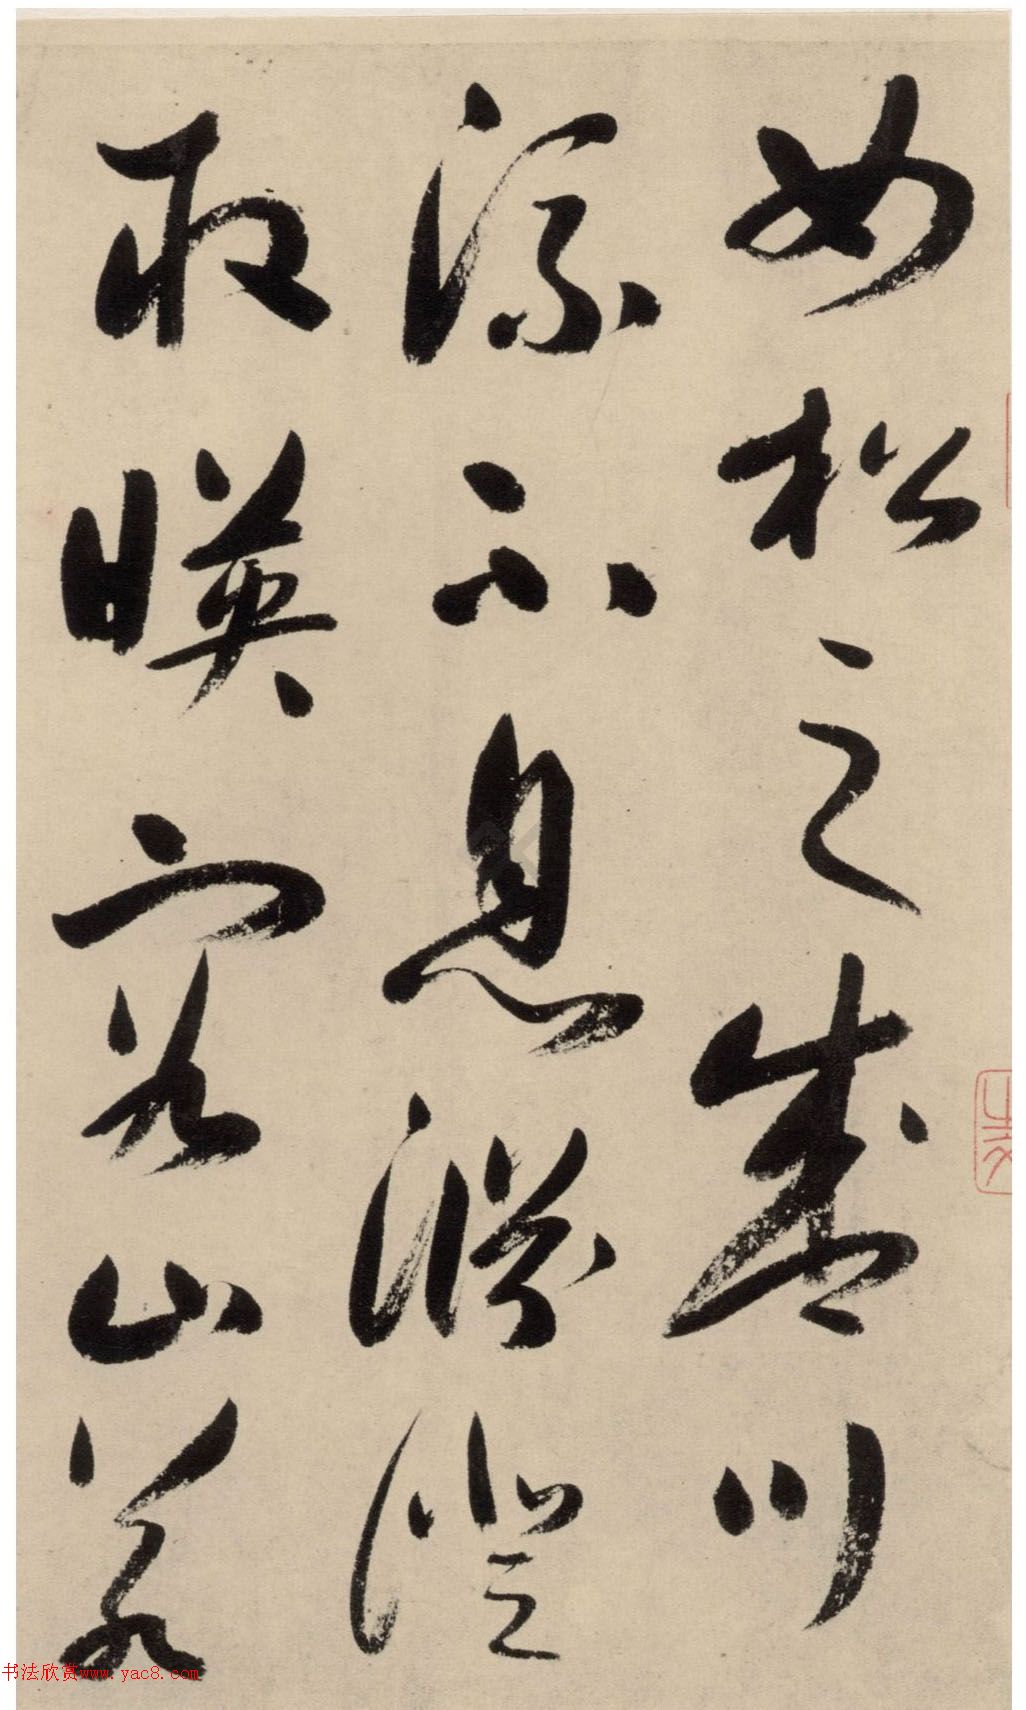 如松之盛川
流不息淵澄
取暎容止若
书法欣赏www.yac8.com